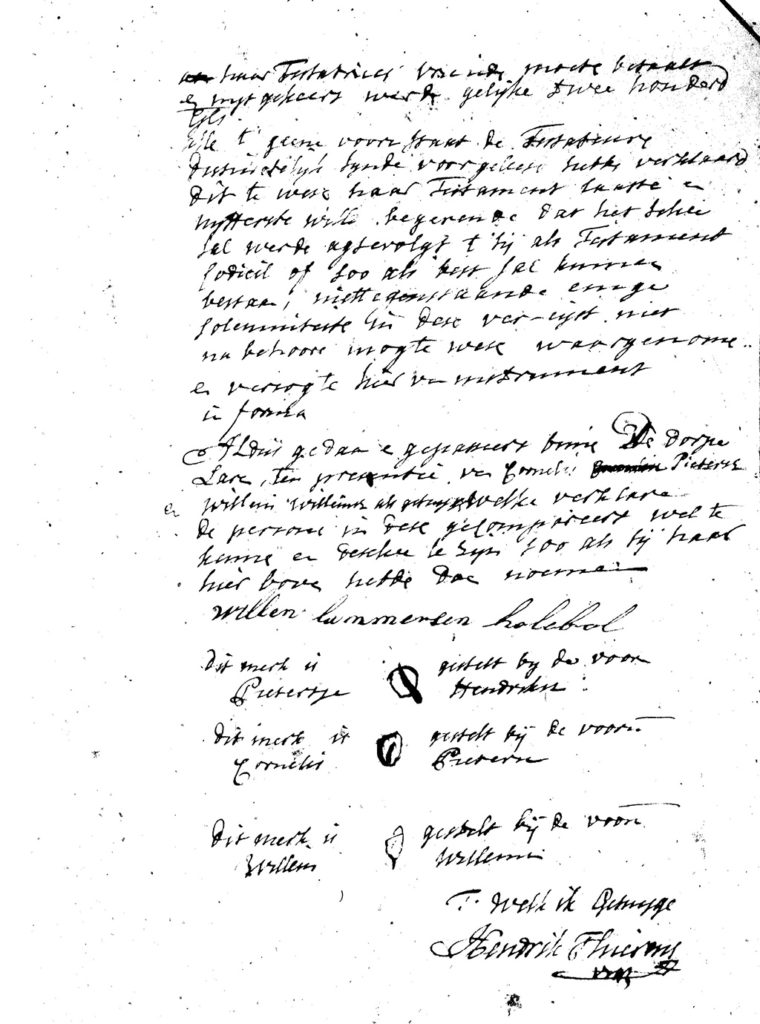 haar Testatrices vrienden moete betaalt
e uijtgekeert werde gelijke twee honderd
Gls
Alle 't geene voorstaat de Testateure
duidelijk sijnde voorgelese hebbe verklaard
dit te wese haar Testament laaste e
uytterste wille begerende dat het selve
sal werde agtervolgt 't sij als Testament
Codicil of soo als best sal kunne
bestaan, niettegenstaande enige
solemniteite in dese ver-eijst niet
na behoore mogte wese waargenome
e versogte hier van instrument
in forma
Aldus gedaan e gepasseert binne De dorpe
Lare, ten presentie van Cornelis Pieterse
en Willem Willemse als getuyge welke verklare
de persone in dese gecompareert wel te
kenne en deselve te sijn soo als sij haar
hier bove hebbe doe noeme
willem lammersen kalebol
dit merk is gestelt by de voor
Pietertje Hendriks
dit merk is gestelt bij de voorn
Cornelis Pieterse
dit merk is gestelt bij de voorn
Willem Willemse
T Welk ik Getuyge
Hendrik Thierens